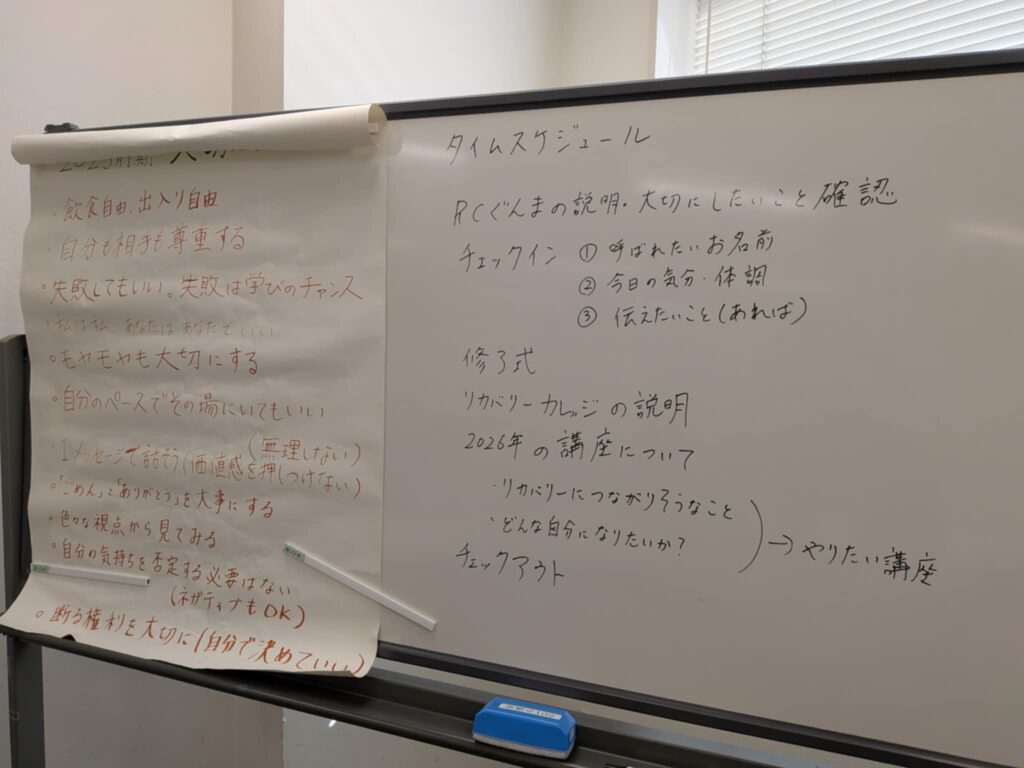 2025前期 大切
・飲食自由、出入り自由
・自分も相手も尊重する
・失敗してもいい。失敗は学びのチャンス
・私は私 あなたはあなたでいい
・モヤモヤも大切にする
・自分のペースでその場にいてもいい
(無理しない)
・Iメッセージで話そう(価値感を押しつけない)
・「ごめん」と「ありがとう」を大事にする
・色々な視点から見てみる
・自分の気持ちを否定する必要はない
(ネガティブもOK)
○断る権利を大切に(自分で決めていい)
タイムスケジュール
RCぐんまの説明・大切にしたいこと確認
チェックイン ① 呼ばれたいお名前
② 今日の気分・体調
③ 伝えたいこと(あれば)
修了式
リカバリーカレッジの説明
2026年の講座について
・リカバリーにつながりそうなこと
・どんな自分になりたいか?
→やりたい講座
チェックアウト